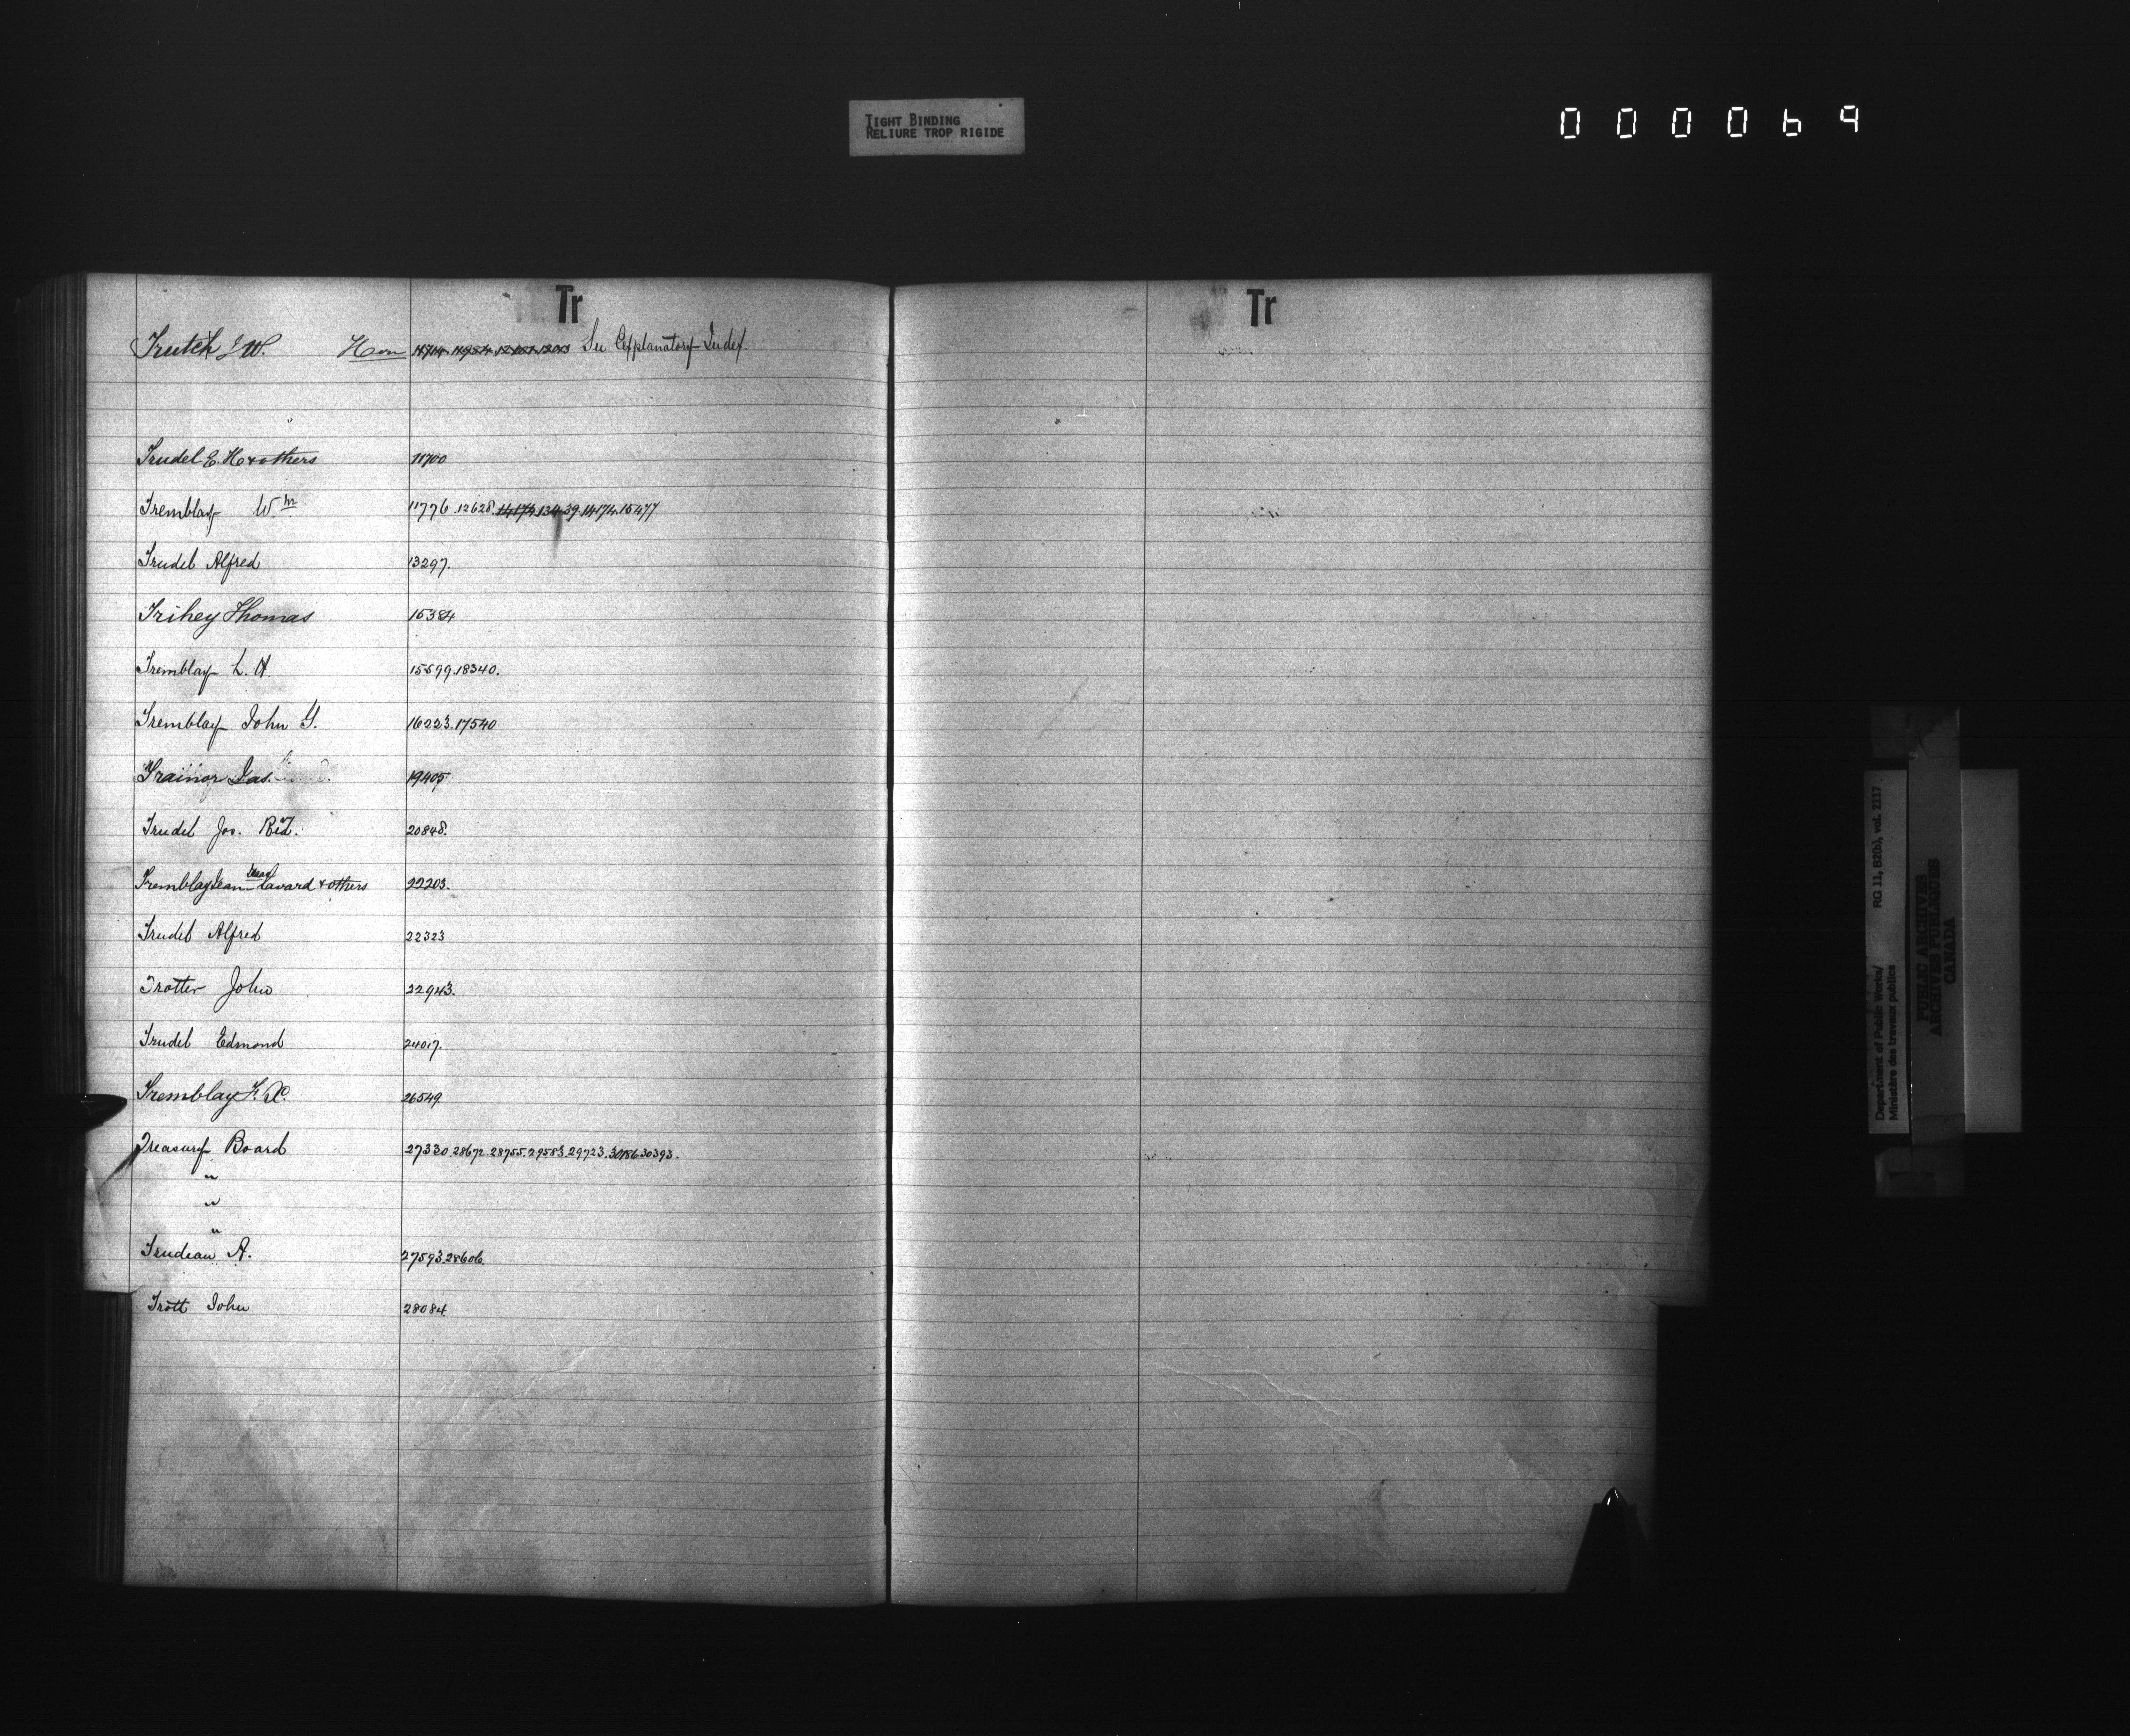 TIGHT BINDING
RELIURE TROP RIGIDE
000069
Tr
Trutch J W. Hon 11714. 11954. See Explanatory Index.
Trudel E. H & others 11700
Tremblay Wm 11776.12628.14174.13439.14174.15477
Trudel Alfred 13297.
Trihey Thomas 15384
Tremblay L. H. 15599.18340.
Tremblay John Y. 16223.17540
Trainor Jas. 19405
Trudel Jos. 20848.
Tremblay Jean & others 22203.
Trudel Alfred 22323
Trotter John 22943.
Trudel Edmond 24017.
Tremblay F. X. 26549
Treasury Board 27330.28672.28755.29583.29723.30186.30393.
"
"
"
Trudeau A. 27593.28606
Trott John 28084
Tr
Department of Public Works/
Ministère des travaux publics
RG 11, B2(b), vol. 2117
PUBLIC ARCHIVES
ARCHIVES PUBLIQUES
CANADA